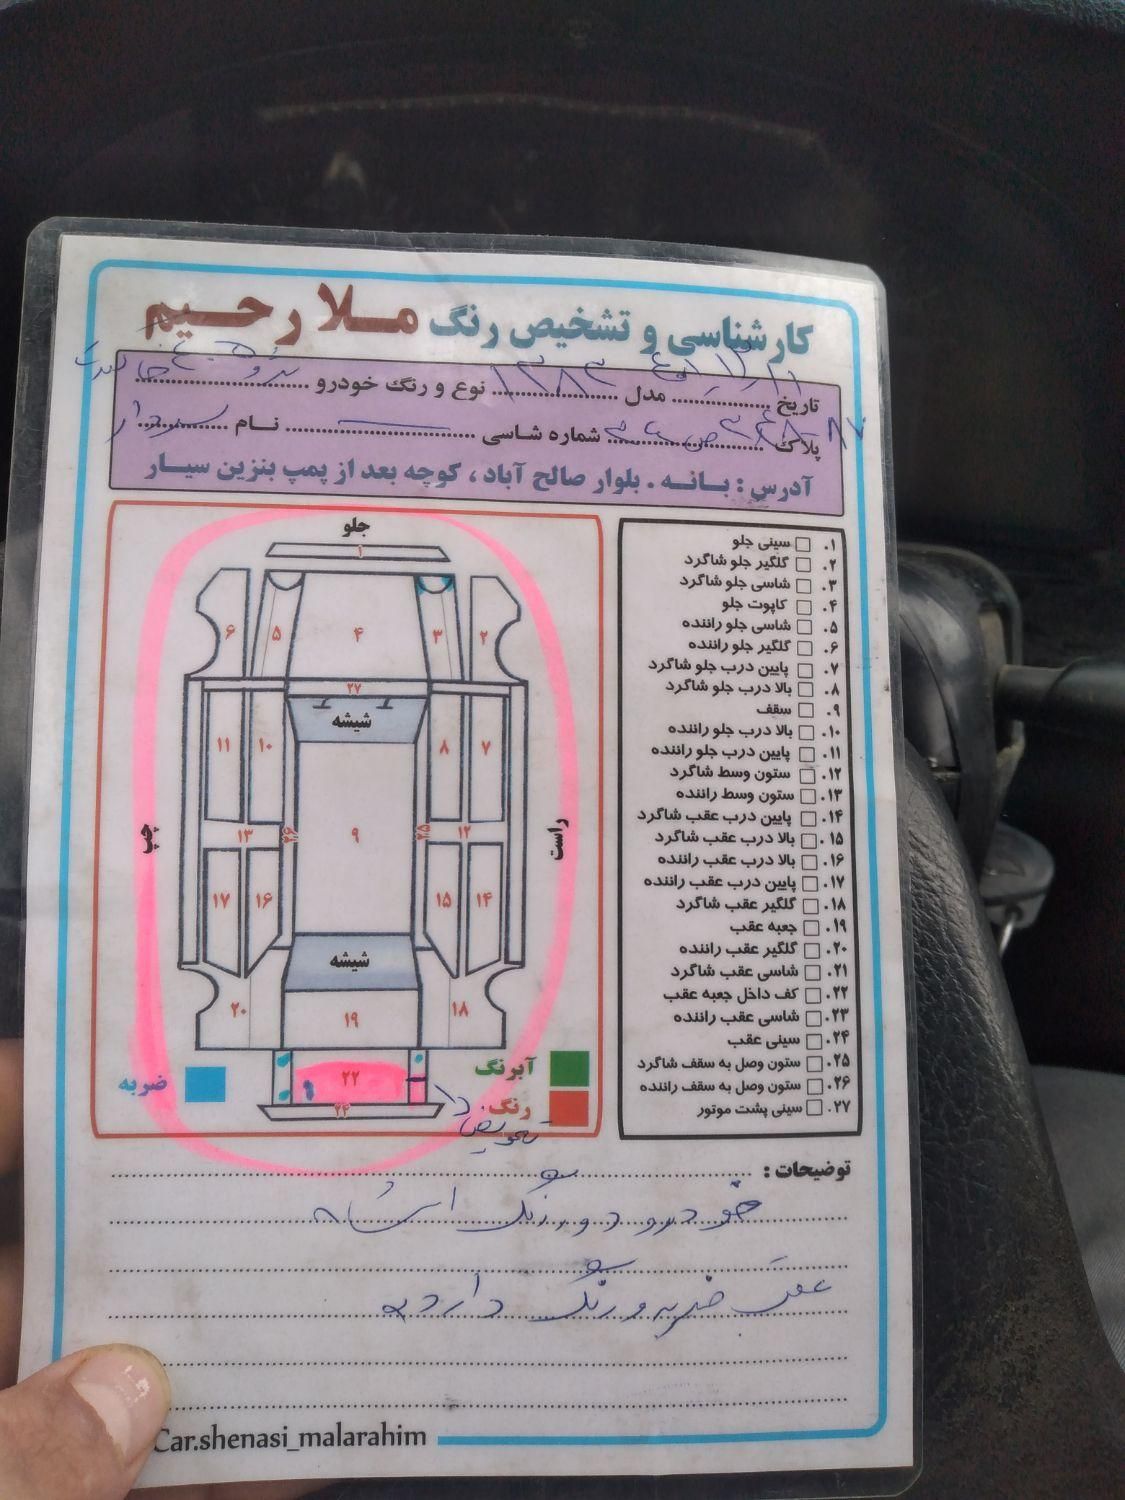 کارشناسی و تشخیص رنگ ملا رحیم
تاریخ ........ مدل ۱۳۸۳ نوع و رنگ خودرو پژو
پلاک ........ شماره شاسی ........ نام سردار
آدرس : بانه . بلوار صالح آباد ، کوچه بعد از پمپ بنزین سیار
۱. سینی جلو
۲. گلگیر جلو شاگرد
۳. شاسی جلو شاگرد
۴. کاپوت جلو
۵. شاسی جلو راننده
۶. گلگیر جلو راننده
۷. پایین درب جلو شاگرد
۸. بالا درب جلو شاگرد
۹. سقف
۱۰. بالا درب جلو راننده
۱۱. پایین درب جلو راننده
۱۲. ستون وسط شاگرد
۱۳. ستون وسط راننده
۱۴. پایین درب عقب شاگرد
۱۵. بالا درب عقب شاگرد
۱۶. بالا درب عقب راننده
۱۷. پایین درب عقب راننده
۱۸. گلگیر عقب شاگرد
۱۹. جعبه عقب
۲۰. گلگیر عقب راننده
۲۱. شاسی عقب شاگرد
۲۲. کف داخل جعبه عقب
۲۳. شاسی عقب راننده
۲۴. سینی عقب
۲۵. ستون وصل به سقف شاگرد
۲۶. ستون وصل به سقف راننده
۲۷. سینی پشت موتور
جلو
۱
۲ ۳ ۴ ۵ ۶
۲۷
شیشه
۷ ۸ ۱۰ ۱۱
راست ۱۲ ۲۵ ۹ ۲۶ ۱۳ چپ
۱۴ ۱۵ ۱۶ ۱۷
شیشه
۱۸ ۱۹ ۲۰
آبرنگ ۲۲ ضربه
رنگ ۲۴
تعویض
توضیحات :
خودرو دور رنگ
عقب ضربه و رنگ دارد
Car.shenasi_malarahim